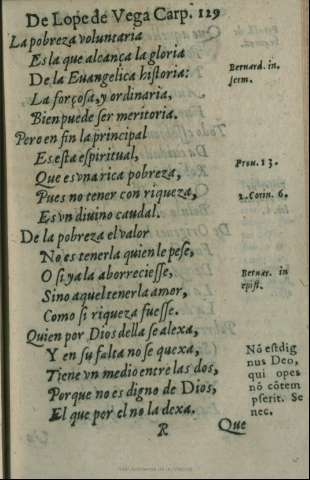 De Lope de Vega Carp. 129
La pobreza voluntaria
Es la que alcança la gloria
De la Euangelica historia:
Bernard. in.
serm.
La forçosa, y ordinaria,
Bien puede ser meritoria.
Pero en fin la principal
Es esta espiritual,
Que es vna rica pobreza,
Prou. 13.
Pues no tener con riqueza,
2. Corin. 6.
Es vn diuino caudal.
De la pobreza el valor
No es tenerla quien le pese,
O si ya la aborreciesse,
Bernar. in
epist.
Sino aquel tenerla amor,
Como si riqueza fuesse.
Quien por Dios della se alexa,
Y en su falta no se quexa,
Tiene vn medio entre las dos,
Porque no es digno de Dios,
El que por el no la dexa.
Nõ est dig
nus Deo,
qui opes
nõ cõtem
pserit. Se
nec.
R
Que